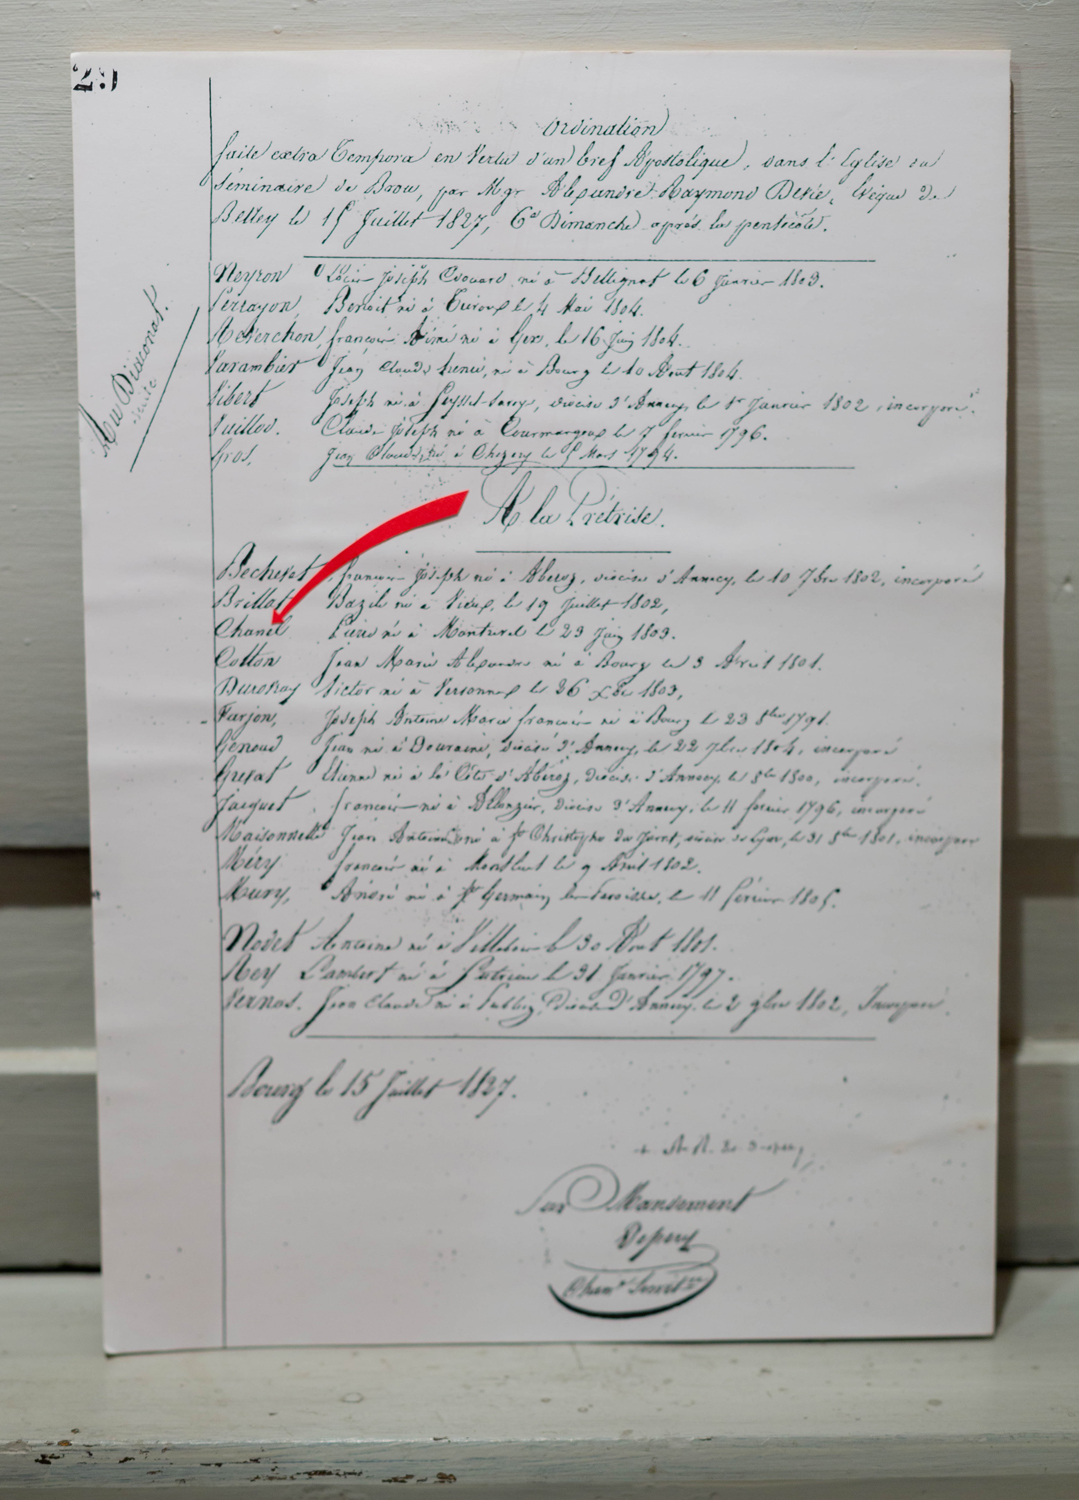 29
Ordination
faite extra Tempora en vertu d'un bref Apostolique, dans l'Eglise du
séminaire de Brou, par Mgr Alexandre Raymond Devie, Evêque de
Belley le 15 Juillet 1827, 6e Dimanche après la pentecôte.
Au Diaconat.
Neyron Joseph Edouard né à Bellignat le 6 Janvier 1803.
Perrayon, Benoit né à le 4 Mai 1804.
Reverchon, françois Aimé né à Gex, le 16 Juin 1804.
Varambier Jean Claude né à Bourg le 10 Aout 1804.
Vibert Joseph né à Seyssel diocèse d'Annecy, le 1er Janvier 1802 incorporé.
Vuillod. Claude Joseph né à Courmangoux le 7 fevrier 1796.
Gros, Jean Claude, né à Chezery le 5 Mars 1794.
A la Prêtrise.
Becheret, françois Joseph né à diocèse d'Annecy, le 10 7bre 1802, incorporé
Brillat Bazile né à Vieux, le 19 juillet 1802,
Chanel Pierre né à Montrevel le 23 Juin 1803.
Cotton Jean Marie Alexandre né à Bourg le 3 Avril 1801.
Victor né à le 26 1803,
Farjon, Joseph Antoine Marie françois né à Bourg le 23 8bre 1791.
Genoud Jean né à Douvaine, diocèse d'Annecy, le 22 7bre 1804, incorporé
Etienne né à la Côte d' diocèse d'Annecy, le 8bre 1800, incorporé.
Jacquet françois né à diocèse d'Annecy, le 11 fevrier 1796, incorporé
Maisonnette Jean Antoine né à St Christophe de Lyon, le 31 8bre 1801, incorporé
Méry françois né à Montluel le 9 Avril 1802.
Mury, André né à St Germain le 11 février 1805.
Nodet Antoine né à le 30 Aout 1801.
Rey Lambert né à le 31 Janvier 1797.
Vernaz. Jean Claude né à diocèse d'Annecy, le 2 9bre 1802, Incorporé.
Bourg le 15 Juillet 1827.
Par Mandement
Depery